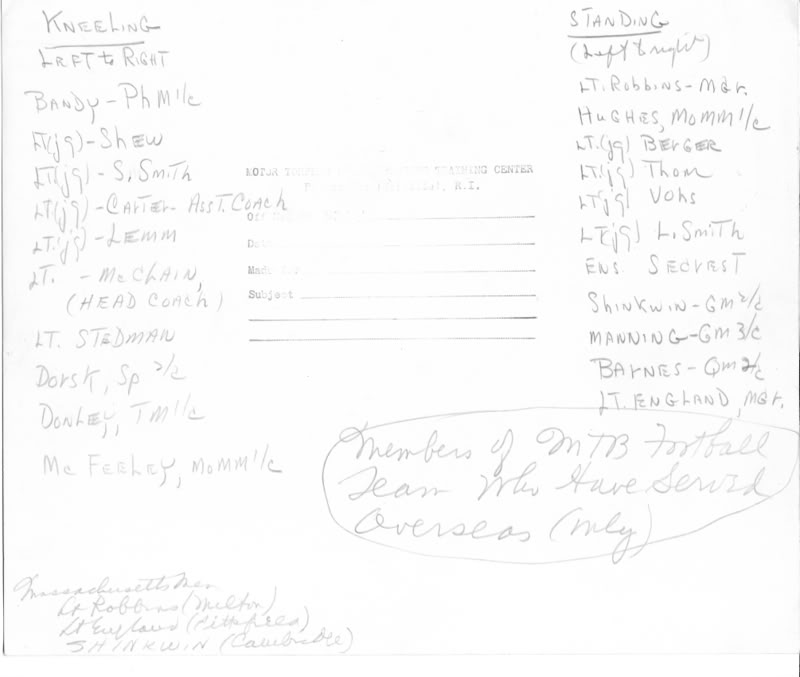 KNEELING
LEFT to RIGHT
BANDY - PhM 1/c
LT(jg) - SHEW
LT(jg) - S. Smith
LT(jg) - CARTER - ASST. COACH
LT.(jg) - LEMM
LT. - McCLAIN,
(HEAD COACH)
LT. STEDMAN
DORSK, Sp 2/c
DONLEY, TM 1/c
Mc FEELEY, MOMM 1/c
STANDING
(Left to right)
LT. Robbins - Mgr.
HUGHES, MOMM 1/c
LT.(jg) BERGER
LT(jg) Thom
LT(jg) VOHS
LT(jg) L. SMITH
ENS SECREST
SHINKWIN - GM 2/c
MANNING - GM 3/c
BARNES - QM 2/c
LT. ENGLAND, MGR.
MOTOR TORPEDO TRAINING CENTER
R.I.
Made for
Subject
Members of MTB Football
Team Who Have Served
Overseas (only)
Massachusetts Men
Lt Robbins (Milton)
Lt England (Pittsfield)
SHINKWIN (Cambridge)